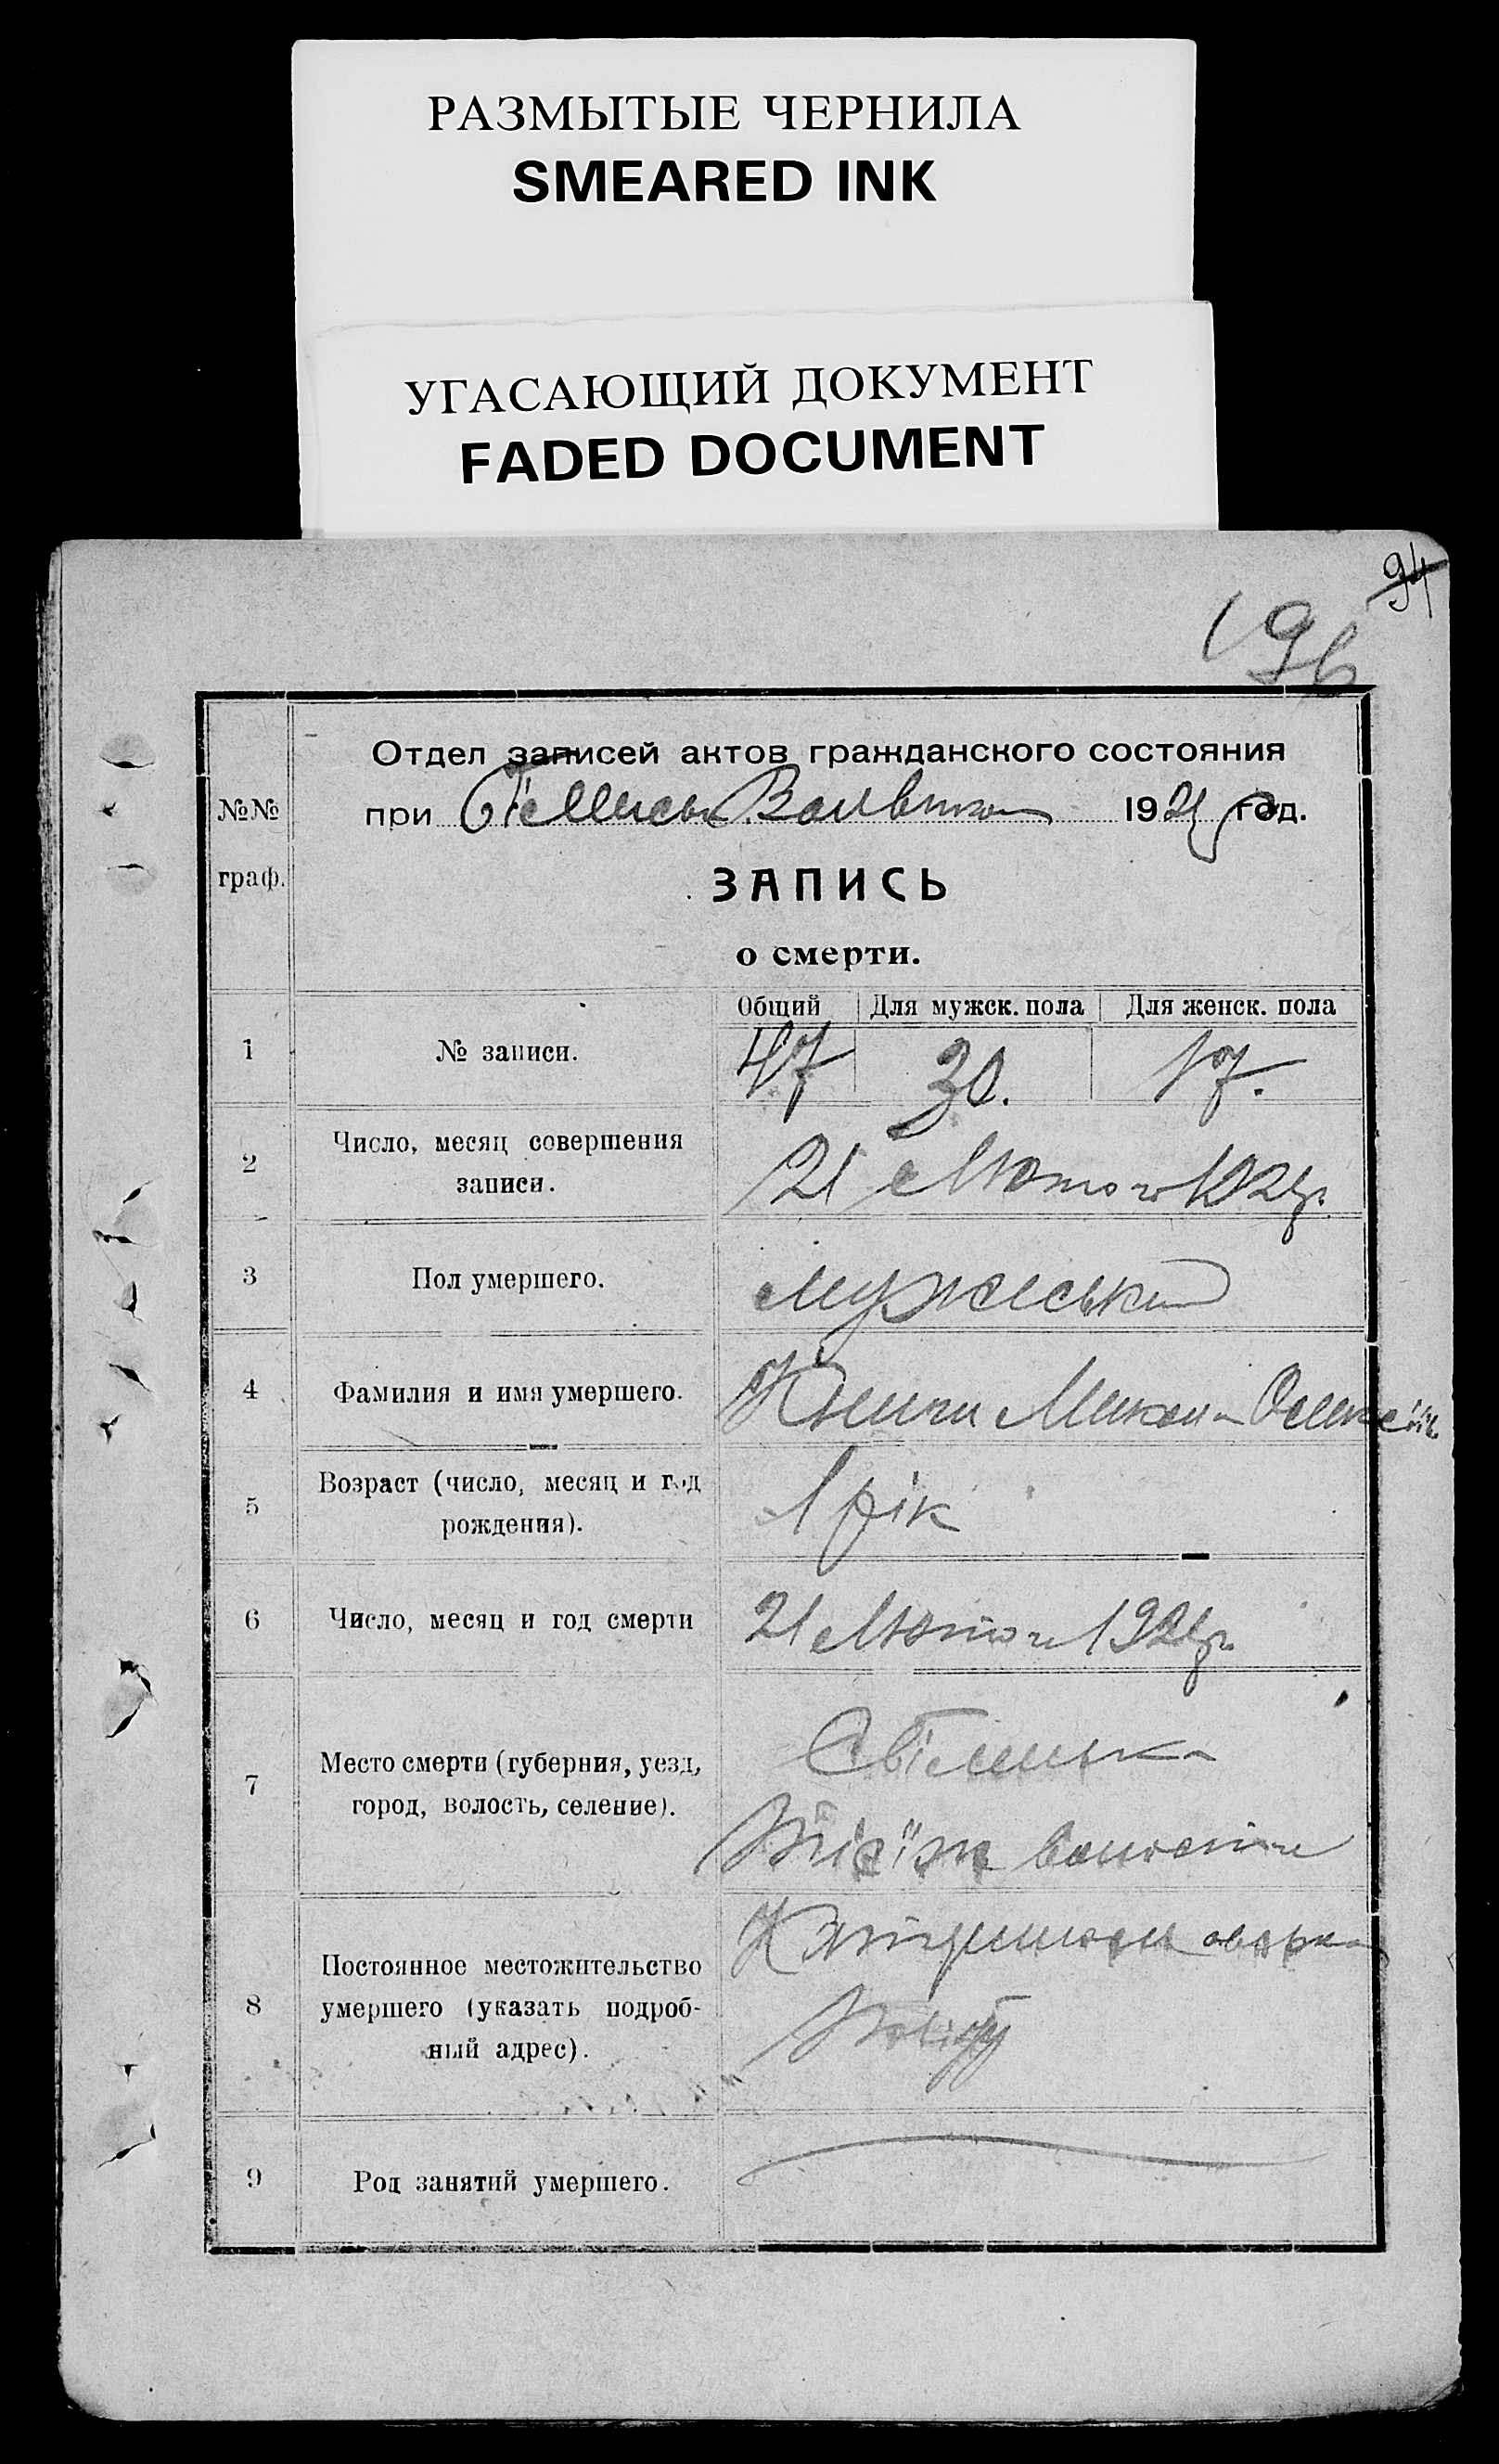 РАЗМЫТЫЕ ЧЕРНИЛА
SMEARED INK
УГАСАЮЩИЙ ДОКУМЕНТ
FADED DOCUMENT
94
196
Отдел записей актов гражданского состояния
№№ граф.
при 1921 год.
ЗАПИСЬ
о смерти.
Общий Для мужск. пола Для женск. пола
1 № записи. 47 30. 17.
2 Число, месяц совершения записи. 21 Лютого 1921р.
3 Пол умершего. мужеський
4 Фамилия и имя умершего.
5 Возраст (число, месяц и год рождения). 1 рік
6 Число, месяц и год смерти 21 Лютого 1921р.
7 Место смерти (губерния, уезд,
город, волость, селение). волости
8 Постоянное местожительство
умершего (указать подроб-
ный адрес). повіту
9 Род занятий умершего.